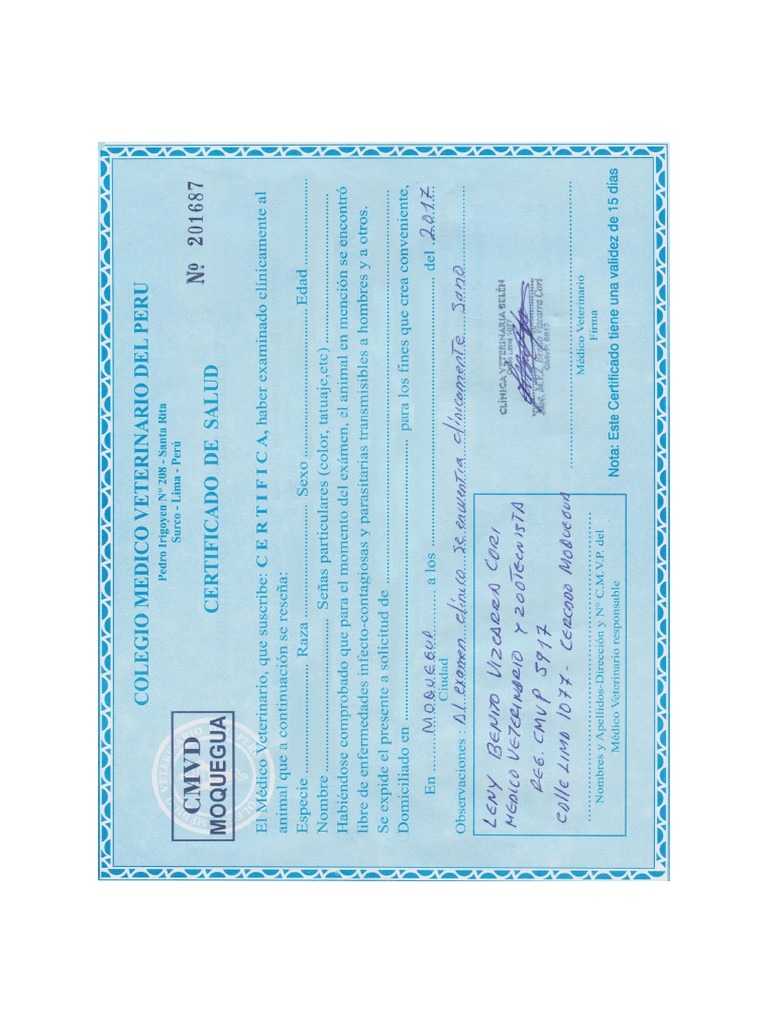 COLEGIO MEDICO VETERINARIO DEL PERU
Pedro Irigoyen Nº 208 - Santa Rita
Surco - Lima - Perú
CERTIFICADO DE SALUD
Nº 201687
CMVD
MOQUEGUA
El Médico Veterinario, que suscribe: CERTIFICA, haber examinado clínicamente al
animal que a continuación se reseña:
Especie ........ Raza ........ Sexo ........ Edad ........
Nombre ........ Señas particulares (color, tatuaje,etc) ........
Habiéndose comprobado que para el momento del exámen, el animal en mención se encontró
libre de enfermedades infecto-contagiosas y parasitarias transmisibles a hombres y a otros.
Se expide el presente a solicitud de ........
Domiciliado en ........ para los fines que crea conveniente,
En MOQUEGUA a los ........ del 2017
Ciudad
Observaciones : Al examen clinico se encuentra clinicamente sano
LENY BENITO VIZCARRA CORI
MEDICO VETERINARIO Y ZOOTECNISTA
REG. CMVP 5917
Calle LIMA 1077 - CERCADO MOQUEGUA
Nombres y Apellidos-Dirección y Nº C.M.V.P. del
Médico Veterinario responsable
CLÍNICA VETERINARIA BELÉN
Vizcarra Cori
Médico Veterinario
Firma
Nota: Este Certificado tiene una validez de 15 días